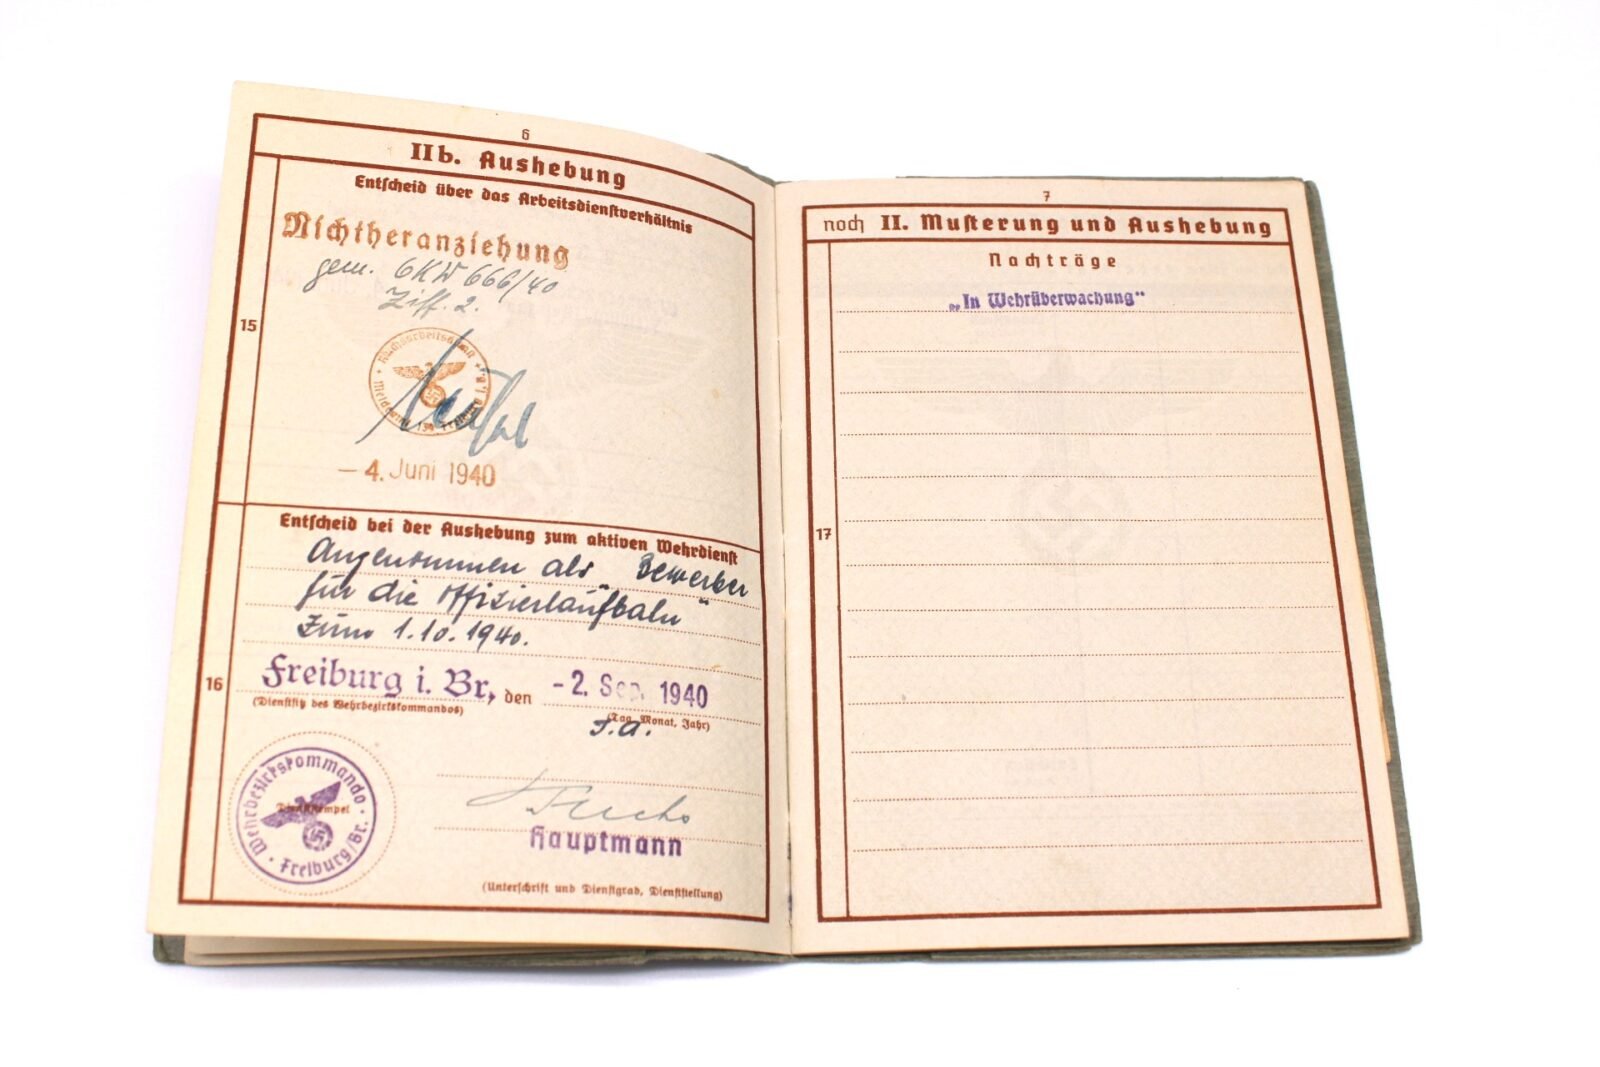 6
IIb. Aushebung
Entscheid über das Arbeitsdienstverhältnis
Nichtheranziehung
gem. OKW 666/40
Ziff. 2.
15
Reichsarbeitsdienst
– 4. Juni 1940
Entscheid bei der Aushebung zum aktiven Wehrdienst
Angenommen als "Bewerber
für die Offizierlaufbahn"
zum 1.10.1940.
16
Freiburg i. Br., den - 2. Sep. 1940
(Dienstsitz des Wehrbezirkskommandos) (Tag, Monat, Jahr)
J.A.
Wehrbezirkskommando
Dienststempel
Freiburg/Br.
Fuchs
Hauptmann
(Unterschrift und Dienstgrad, Dienststellung)
7
noch II. Musterung und Aushebung
Nachträge
„In Wehrüberwachung“
17